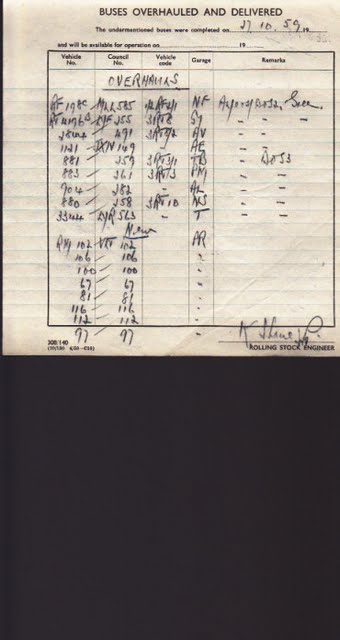 BUSES OVERHAULED AND DELIVERED
The undermentioned buses were completed on 27.10.59 19
and will be available for operation on 19
Vehicle No. Council No. Vehicle code Garage Remarks
OVERHAULS
RF 1985 MLL 585 NF
RT 4196 LYF 255 3RT8 SJ - - -
3844 491 3RT3/2 AV - - -
1141 149 AE - - -
881 259 3RT3/1 TB - DOSS
883 261 3RT3 PM - - -
904 282 - AL - - -
880 258 3RT10 NS - - -
3344 563 - T - - -
New
RM 102 VLT 102 PR
106 106 "
100 100 "
67 67 "
81 81 "
116 116 "
112 112 "
97 97 "
308/140
ROLLING STOCK ENGINEER